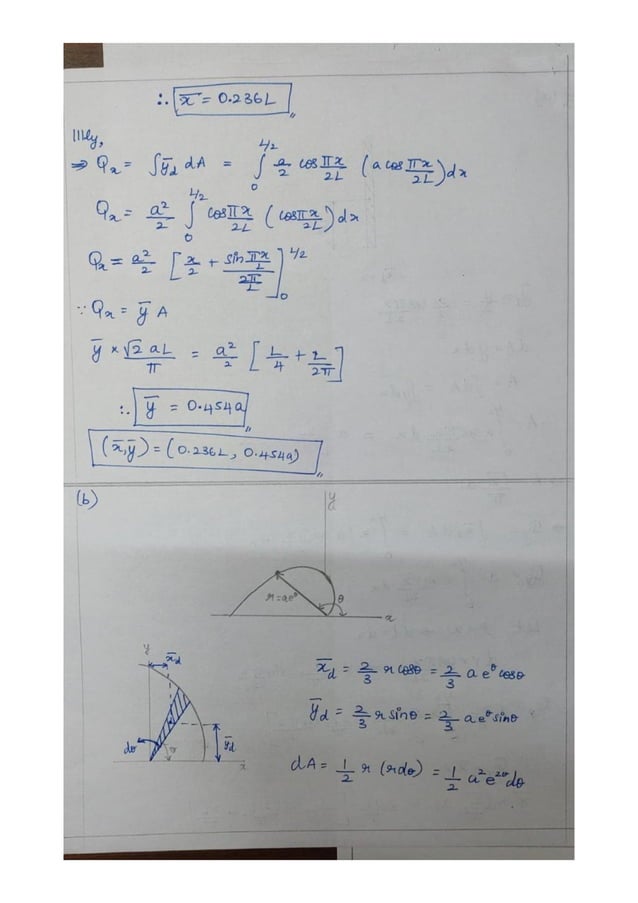 ∴ x̄ = 0.236L
lllly,
⇒ Qx = ∫ȳd dA = ∫₀^(L/2) a/2 cos πx/2L (a cos πx/2L) dx
Qx = a²/2 ∫₀^(L/2) cos πx/2L (cos πx/2L) dx
Qx = a²/2 [x/2 + sin πx/L / 2π/L]₀^(L/2)
∵ Qx = ȳ A
ȳ × √2 aL/π = a²/2 [L/4 + L/2π]
∴ ȳ = 0.454a
(x̄,ȳ) = (0.236L, 0.454a)
(b)
y
r=ae^θ
θ
x
y
x̄d
dθ
θ
ȳd
x
x̄d = 2/3 r cosθ = 2/3 a e^θ cosθ
ȳd = 2/3 r sinθ = 2/3 a e^θ sinθ
dA = 1/2 r (rdθ) = 1/2 a² e^2θ dθ